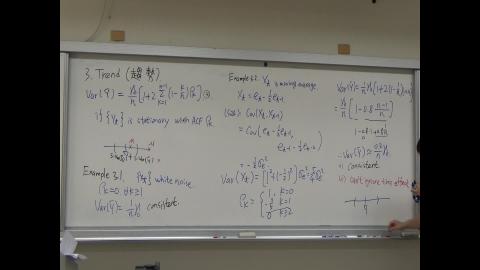 3. Trend (趨勢)
Var(Ȳ) = γ₀/n [1+2 Σ_{k=1}^{n-1} (1-k/n) ρ_k]
if {Y_t} is stationary with ACF ρ_k
Example 3.1. {Y_t} white noise.
ρ_k = 0, ∀k≥1
Var(Ȳ) = 1/n γ₀ consistent.
Example 3.2. Y_t is moving average.
Y_t = e_t - ½e_{t-1}
(sol): Cov(Y_t, Y_{t-1})
= Cov(e_t - ½e_{t-1},
e_{t-1} - ½e_{t-2})
= -½σ_e²
Var(Y_t) = [1²+(-½)²]σ_e² = 5/4 σ_e²
ρ_k = { 1, k=0
k=1
0 k≥2
γ₀/n [1-0.8 (n-1)/n]
∴ Var(Ȳ) ≈
i) consistent
ii) Can't ignore time effect